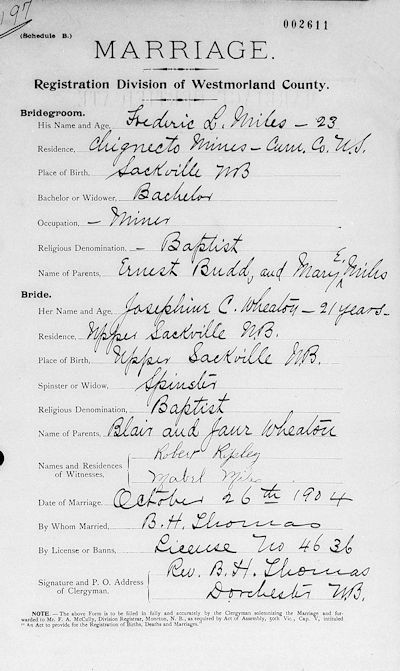 197
002611
(Schedule B.)
MARRIAGE.
Registration Division of Westmorland County.
Bridegroom.
His Name and Age, Frederic L. Miles - 23
Residence, Chignecto Mines - Cum. Co. N.S.
Place of Birth, Sackville NB
Bachelor or Widower, Bachelor
Occupation, - Miner
Religious Denomination, - Baptist
Name of Parents, Ernest Budd, and Mary E. Miles
Bride.
Her Name and Age, Josephine C. Wheaton - 21 years -
Residence, Upper Sackville N.B.
Place of Birth, Upper Sackville N.B.
Spinster or Widow, Spinster
Religious Denomination, Baptist
Name of Parents, Blair and Jane Wheaton
Names and Residences of Witnesses, Robert Ripley
Mabel Miles
Date of Marriage, October 26th 1904
By Whom Married, B. H. Thomas
By License or Banns, License No 4636
Signature and P. O. Address of Clergyman. Rev. B. H. Thomas
Dorchester N.B.
NOTE.—The above Form is to be filled in fully and accurately by the Clergyman solemnizing the Marriage and for-
warded to Mr. F. A. McCully, Division Registrar, Moncton, N. B., as required by Act of Assembly, 50th Vic., Cap. V, intituled
"An Act to provide for the Registration of Births, Deaths and Marriages."